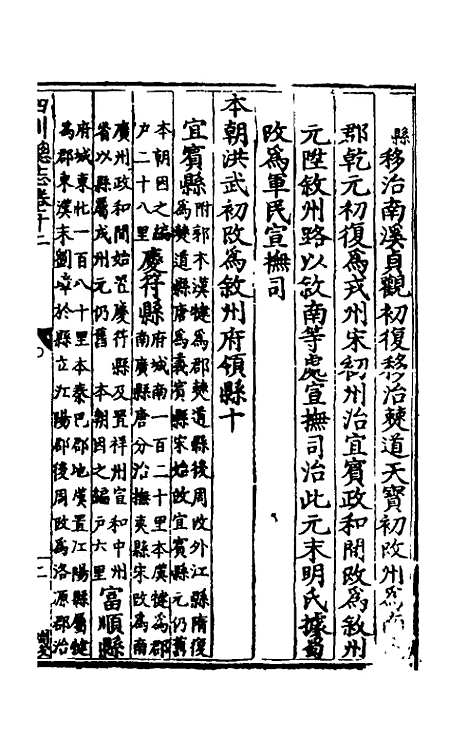 縣移治南溪貞觀初復移治僰道天寶初改州爲南溪
郡乾元初復爲戎州宋初州治宜賓政和間改爲敘州
元陞敘州路以敘南等處宣撫司治此元末明氏據蜀
改爲軍民宣撫司
本朝洪武初改爲敘州府領縣十
宜賓縣附郭本漢犍爲郡僰道縣後周改外江縣隋復
爲僰道縣唐爲義賓縣宋始改宜賓縣元仍舊
本朝因之編
戶二十八里
慶符縣府城南一百二十里本漢犍爲郡
南廣縣唐分治撫夷縣宋改爲南
廣州政和間始置慶符縣及置祥州宣和中州
省以縣屬戎州元仍舊 本朝因之編戶六里
富順縣
府城東北一百八十里本秦巴郡地漢置江陽縣屬犍
爲郡東漢末劉璋於縣立江陽郡後周改爲洛源郡治
四川總志卷十二
二